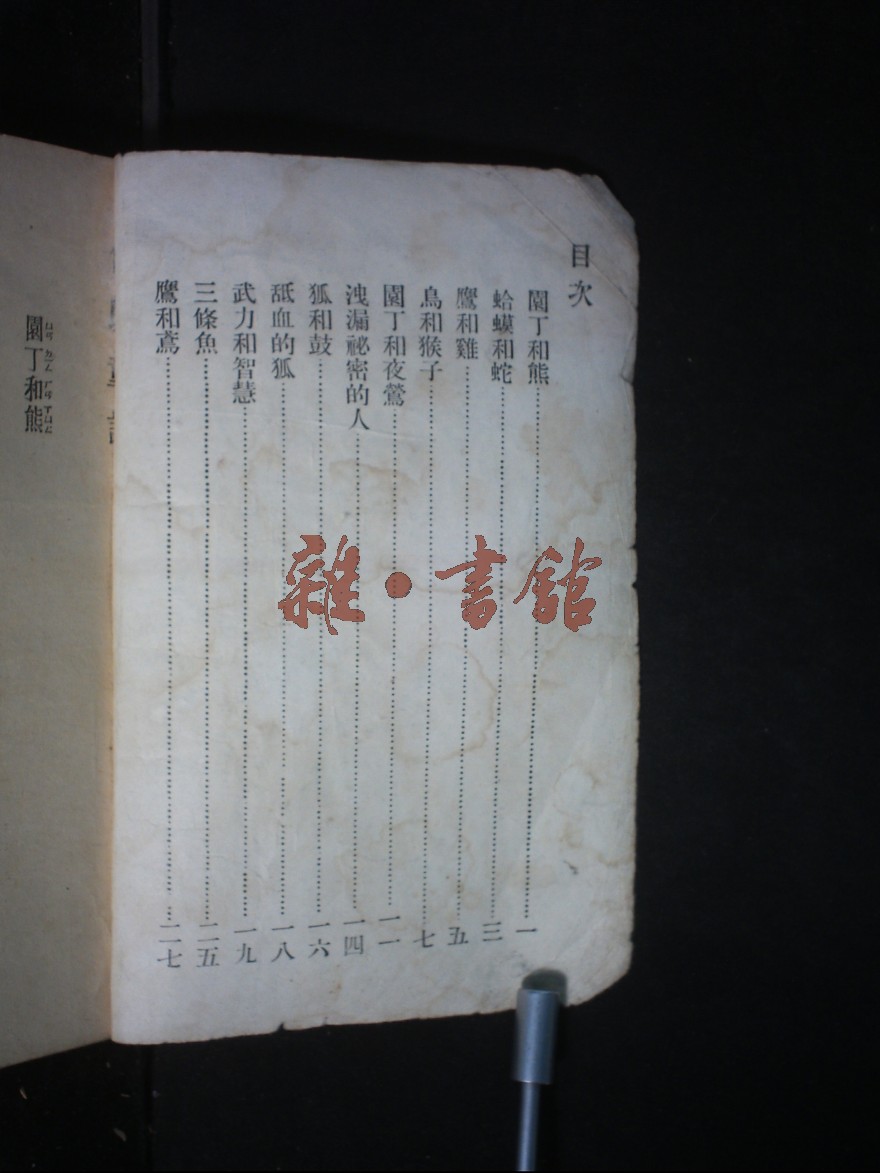 目次
園丁和熊……一
蛤蟆和蛇……三
鷹和雞……五
鳥和猴子……七
園丁和夜鶯……一一
洩漏祕密的人……一四
狐和鼓……一六
舐血的狐……一八
武力和智慧……一九
三條魚……二五
鷹和鳶……二七
園丁和熊
雜·書館